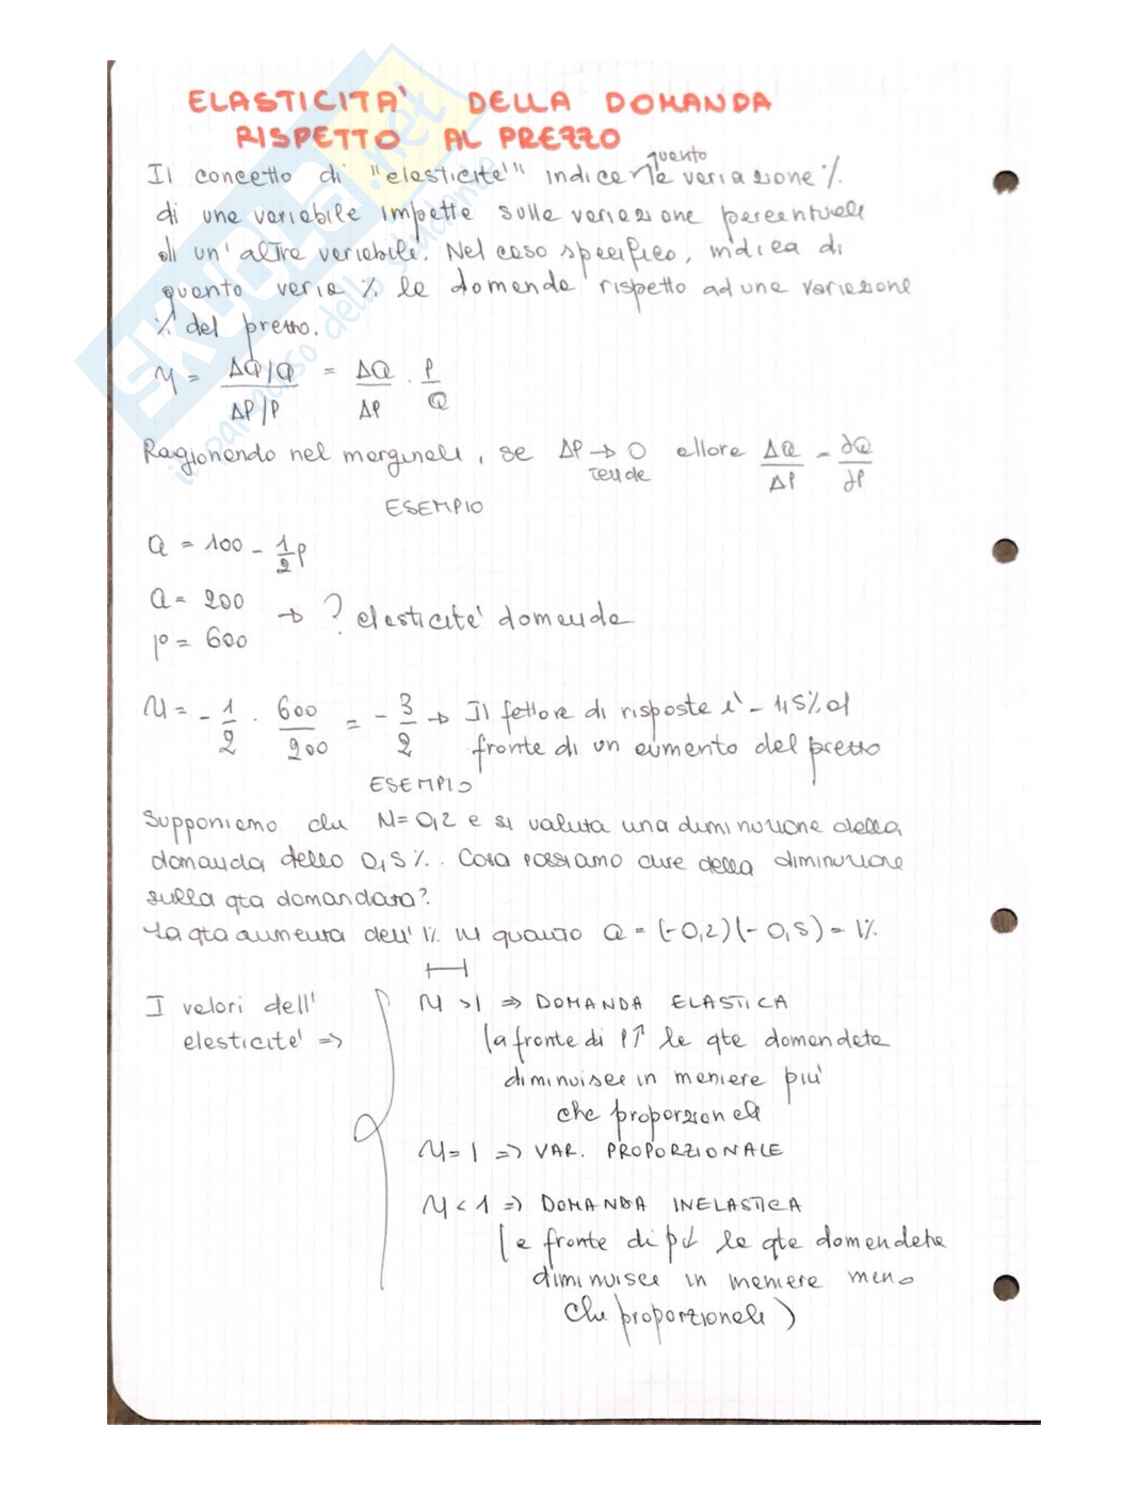 ELASTICITA' DELLA DOMANDA
RISPETTO AL PREZZO
Il concetto di "elasticità" indica quanto la variazione %
di una variabile impatta sulla variazione percentuale
di un'altra variabile. Nel caso specifico, indica di
quanto varia % la domanda rispetto ad una variazione
% del prezzo.
η = ΔQ/Q / ΔP/P = ΔQ/ΔP · P/Q
Ragionando nel marginale, se ΔP → 0 allora ΔQ/ΔP = ∂Q/∂P
tende
ESEMPIO
Q = 100 - 1/2 p
Q = 200
→ ? elasticità domanda
p = 600
η = - 1/2 · 600/200 = - 3/2 → Il fattore di risposta è - 1,5% al
fronte di un aumento del prezzo
ESEMPIO
Supponiamo che η = 0,2 e si valuta una diminuzione della
domanda dello 0,5%. Cosa possiamo dire della diminuzione
sulla qta domandata?
La qta aumenta dell'1% in quanto Q = (-0,2)(-0,5) = 1%
I valori dell'
elasticità =>
η >1 => DOMANDA ELASTICA
(a fronte di P↑ la qta domandata
diminuisce in maniera più
che proporzionale
η = 1 => VAR. PROPORZIONALE
η < 1 => DOMANDA INELASTICA
(a fronte di p↓ la qta domandata
diminuisce in maniera meno
che proporzionale)
SKUOLA.net
il paradiso dello studente